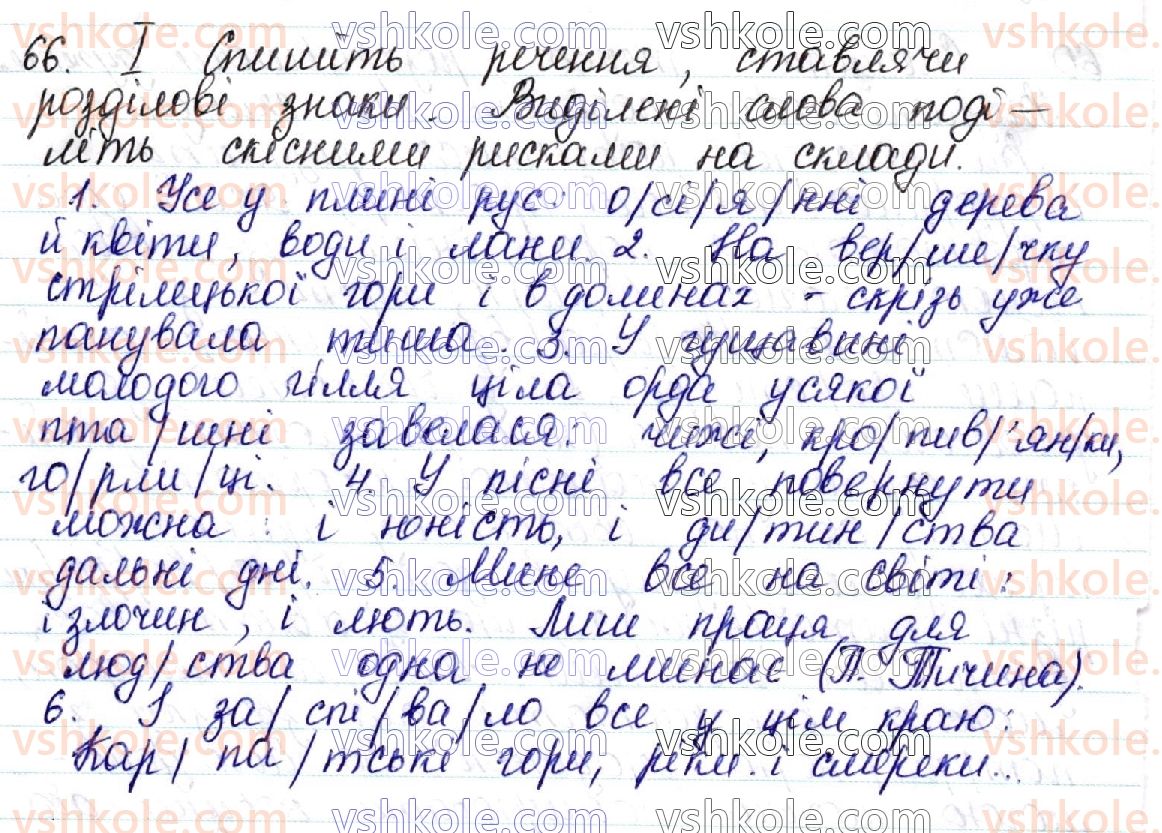 66. I Спишіть речення, ставлячи
розділові знаки. Виділені слова поді-
літь скісними рисками на склади.
1. Усе у плині рус: о/сі/я/нні дерева
й квіти, води і лани. 2. На вер/ше/чку
стрілецької гори і в долинах - скрізь уже
панувала тиша. 3. У гущавині
молодого гілля ціла орда усякої
пта/шні завелася: чижі, кро/пив/'ян/ки,
го/рли/ці. 4 У пісні все повернути
можна: і юність, і ди/тин/ства
дальні дні. 5. Мине все на світі:
і злочин, і лють. Лиш праця для
люд/ства одна не минає (П. Тичина).
6. І за/спі/ва/ло все у цім краю:
Кар/па/тські гори, ріки і смереки...